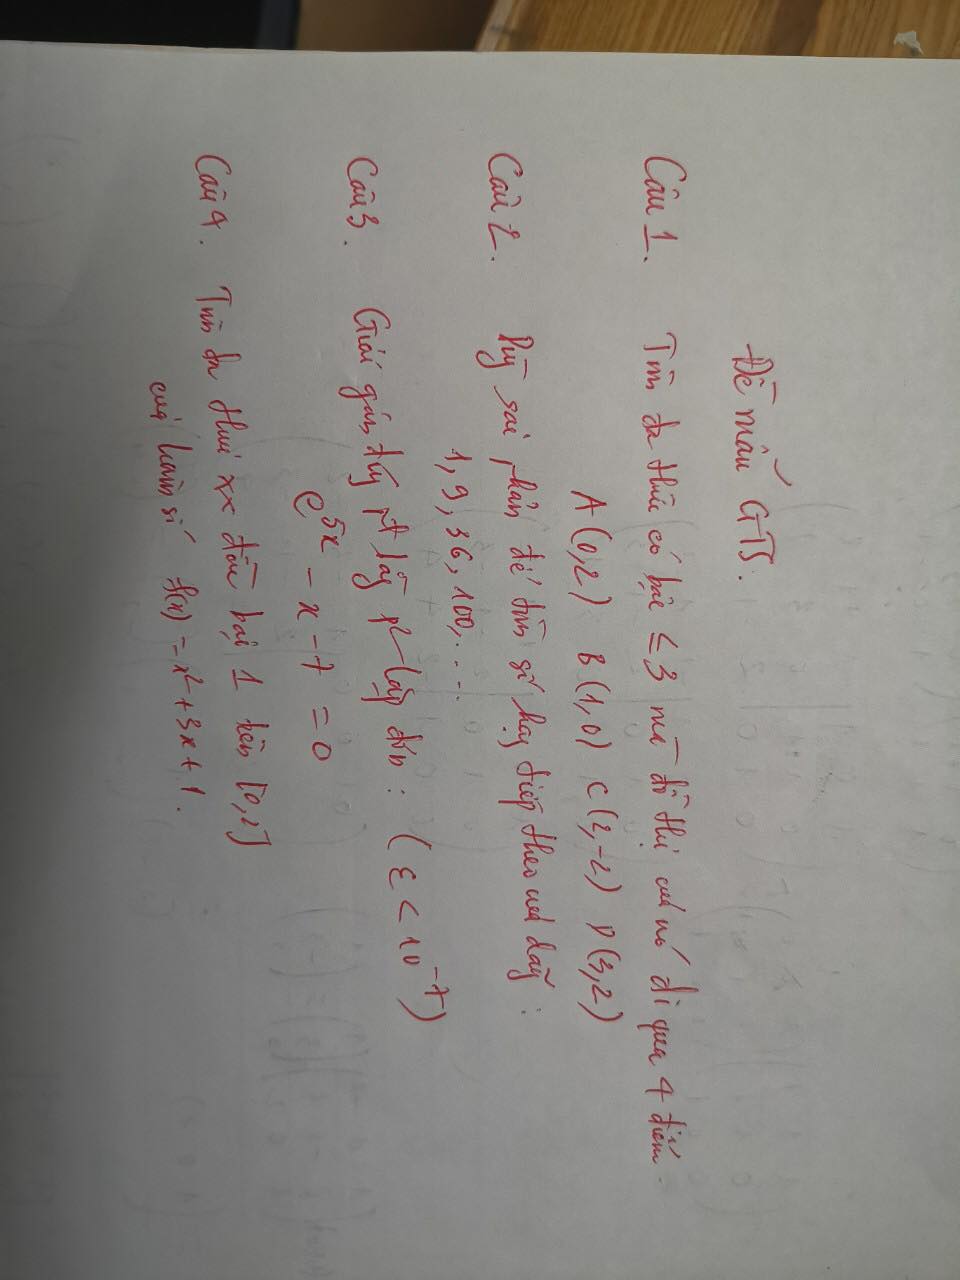 Đề mẫu GTS.
Câu 1. Tìm đa thức có bậc ≤ 3 mà đồ thị của nó đi qua 4 điểm
A (0,2) B (1,0) C (2,-2) D (3,2)
Câu 2. Dùng sai phân để tìm số hạng tiếp theo của dãy :
1, 9, 36, 100, ....
Câu 3. Giải gần đúng pt bằng p² lặp đơn : (ε < 10⁻⁷)
e⁵ˣ - x - 7 = 0
Câu 4. Tìm đa thức xx đều bậc 1 trên [0,2]
của hàm số f(x) = x² + 3x + 1.